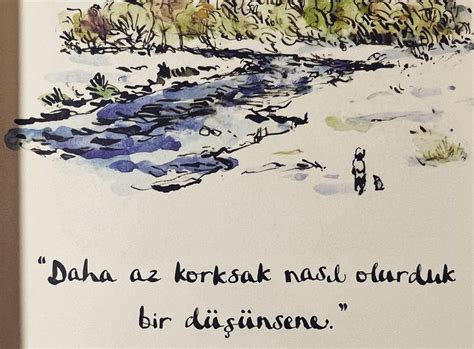 “Daha az korksak nasıl olurduk
bir düşünsene.”